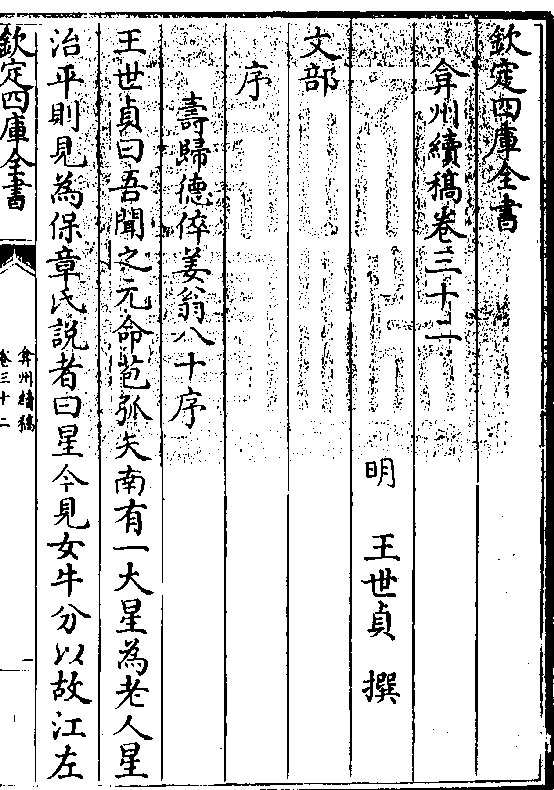 欽定四庫全書
弇州續稿卷三十二
明 王世貞 撰
文部
序
壽歸德倅姜翁八十序
王世貞曰吾聞之元命苞弧矢南有一大星為老人星
治平則見為保章氏説者曰星今見女牛分以故江左
欽定四庫全書
弇州續稿
卷三十二
一